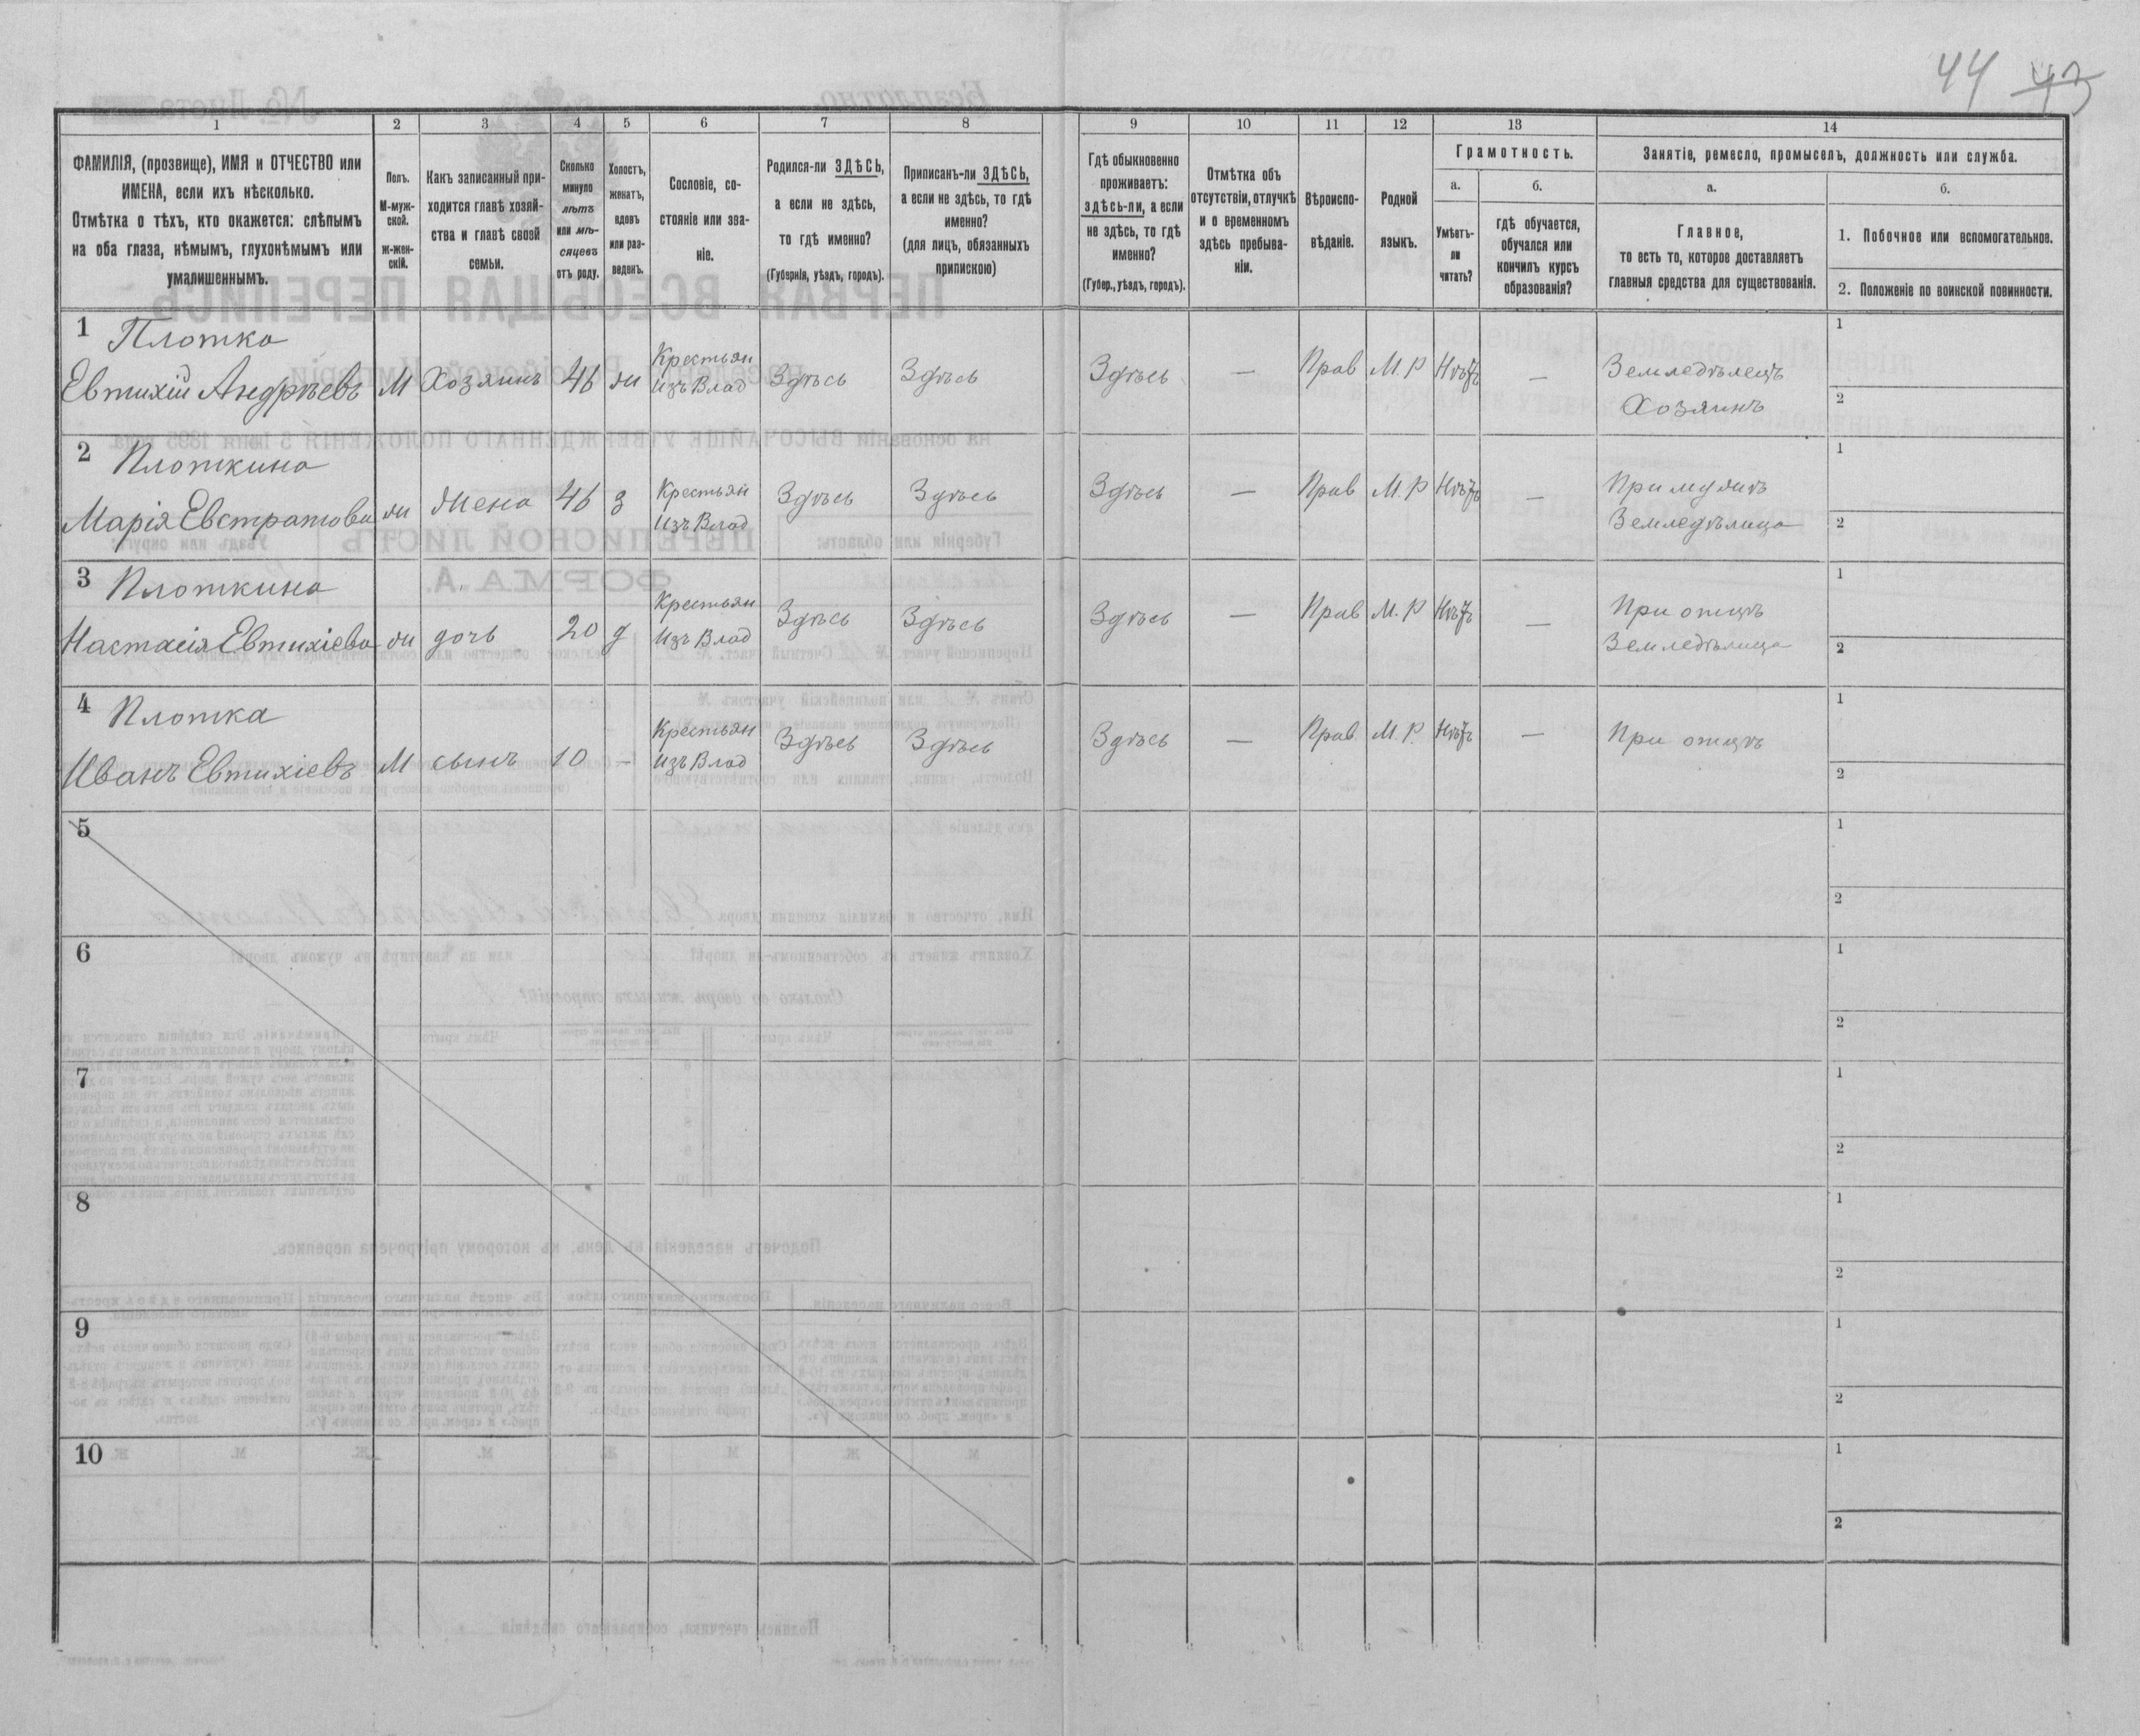 44 43
1 2 3 4 5 6 7 8 9 10 11 12 13 14
ФАМИЛІЯ, (прозвище), ИМЯ и ОТЧЕСТВО или
ИМЕНА, если ихъ нѣсколько.
Отмѣтка о тѣхъ, кто окажется: слѣпымъ
на оба глаза, нѣмымъ, глухонѣмымъ или
умалишеннымъ.
Полъ.
М-муж-
ской.
ж-жен-
скій.
Какъ записанный при-
ходится главѣ хозяй-
ства и главѣ своей
семьи.
Сколько
минуло
лѣтъ
или мѣ-
сяцевъ
отъ роду.
Холостъ,
женатъ,
вдовъ
или раз-
веденъ.
Сословіе, со-
стояніе или зва-
ніе.
Родился-ли ЗДѢСЬ,
а если не здѣсь,
то гдѣ именно?
(Губернія, уѣздъ, городъ).
Приписанъ-ли ЗДѢСЬ,
а если не здѣсь, то гдѣ
именно?
(для лицъ, обязанныхъ
припискою)
Гдѣ обыкновенно
проживаетъ:
здѣсь-ли, а если
не здѣсь, то гдѣ
именно?
(Губер., уѣздъ, городъ).
Отмѣтка объ
отсутствіи, отлучкѣ
и о временномъ
здѣсь пребыва-
ніи.
Вѣроиспо-
вѣданіе.
Родной
языкъ.
Грамотность.
а.
Умѣетъ-
ли
читать?
б.
гдѣ обучается,
обучался или
кончилъ курсъ
образованія?
Занятіе, ремесло, промыселъ, должность или служба.
а.
Главное,
то есть то, которое доставляетъ
главныя средства для существованія.
б.
1. Побочное или вспомогательное.
2. Положеніе по воинской повинности.
1 Плотка
Евтихій Андрѣевъ М Хозяинъ 46 ж Крестьян Изъ Влад Здѣсь Здѣсь Здѣсь — Прав М.Р Нѣтъ — Земледѣлецъ
Хозяинъ
1
2
2 Плоткина
Марія Евстратова ж жена 46 з Крестьян Изъ Влад Здѣсь Здѣсь Здѣсь — Прав М.Р Нѣтъ — При мужѣ
Земледѣлица
1
2
3 Плоткина
Настасія Евтихіева ж дочь 20 д Крестьян Изъ Влад Здѣсь Здѣсь Здѣсь — Прав М.Р Нѣтъ — При отцѣ
Земледѣлица
1
2
4 Плотка
Иванъ Евтихіевъ М сынъ 10 — Крестьян Изъ Влад Здѣсь Здѣсь Здѣсь — Прав М.Р. Нѣтъ — При отцѣ
1
2
5
1
2
6
1
2
7
1
2
8
1
2
9
1
2
10
1
2